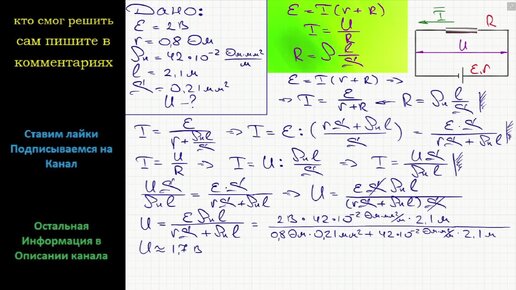 кто смог решить
сам пишите в
комментариях
Ставим лайки
Подписываемся на
Канал
Остальная
Информация в
Описании канала
Дано:
ε = 2 В
r = 0,8 Ом
ρн = 42·10⁻² Ом·мм²/м
l = 2,1 м
S = 0,21 мм²
U - ?
ε = I(r + R)
I = U/R
R = ρ l/S
I R
U
ε, r
ε = I(r + R) =>
=> I = ε/(r + R) <= R = ρн l/S
I = ε/(r + ρн l/S) => I = ε : ((rS + ρн l)/S) = εS/(rS + ρн l)
I = U/R => I = U : ρн l/S => I = US/(ρн l)
US/(ρн l) = εS/(rS + ρн l) => U = εS ρн l/((rS + ρн l)S)
U = ε ρн l/(rS + ρн l) = 2 В · 42·10⁻² Ом·мм²/м · 2,1 м/(0,8 Ом · 0,21 мм² + 42·10⁻² Ом·мм²/м · 2,1 м)
U ≈ 1,7 В